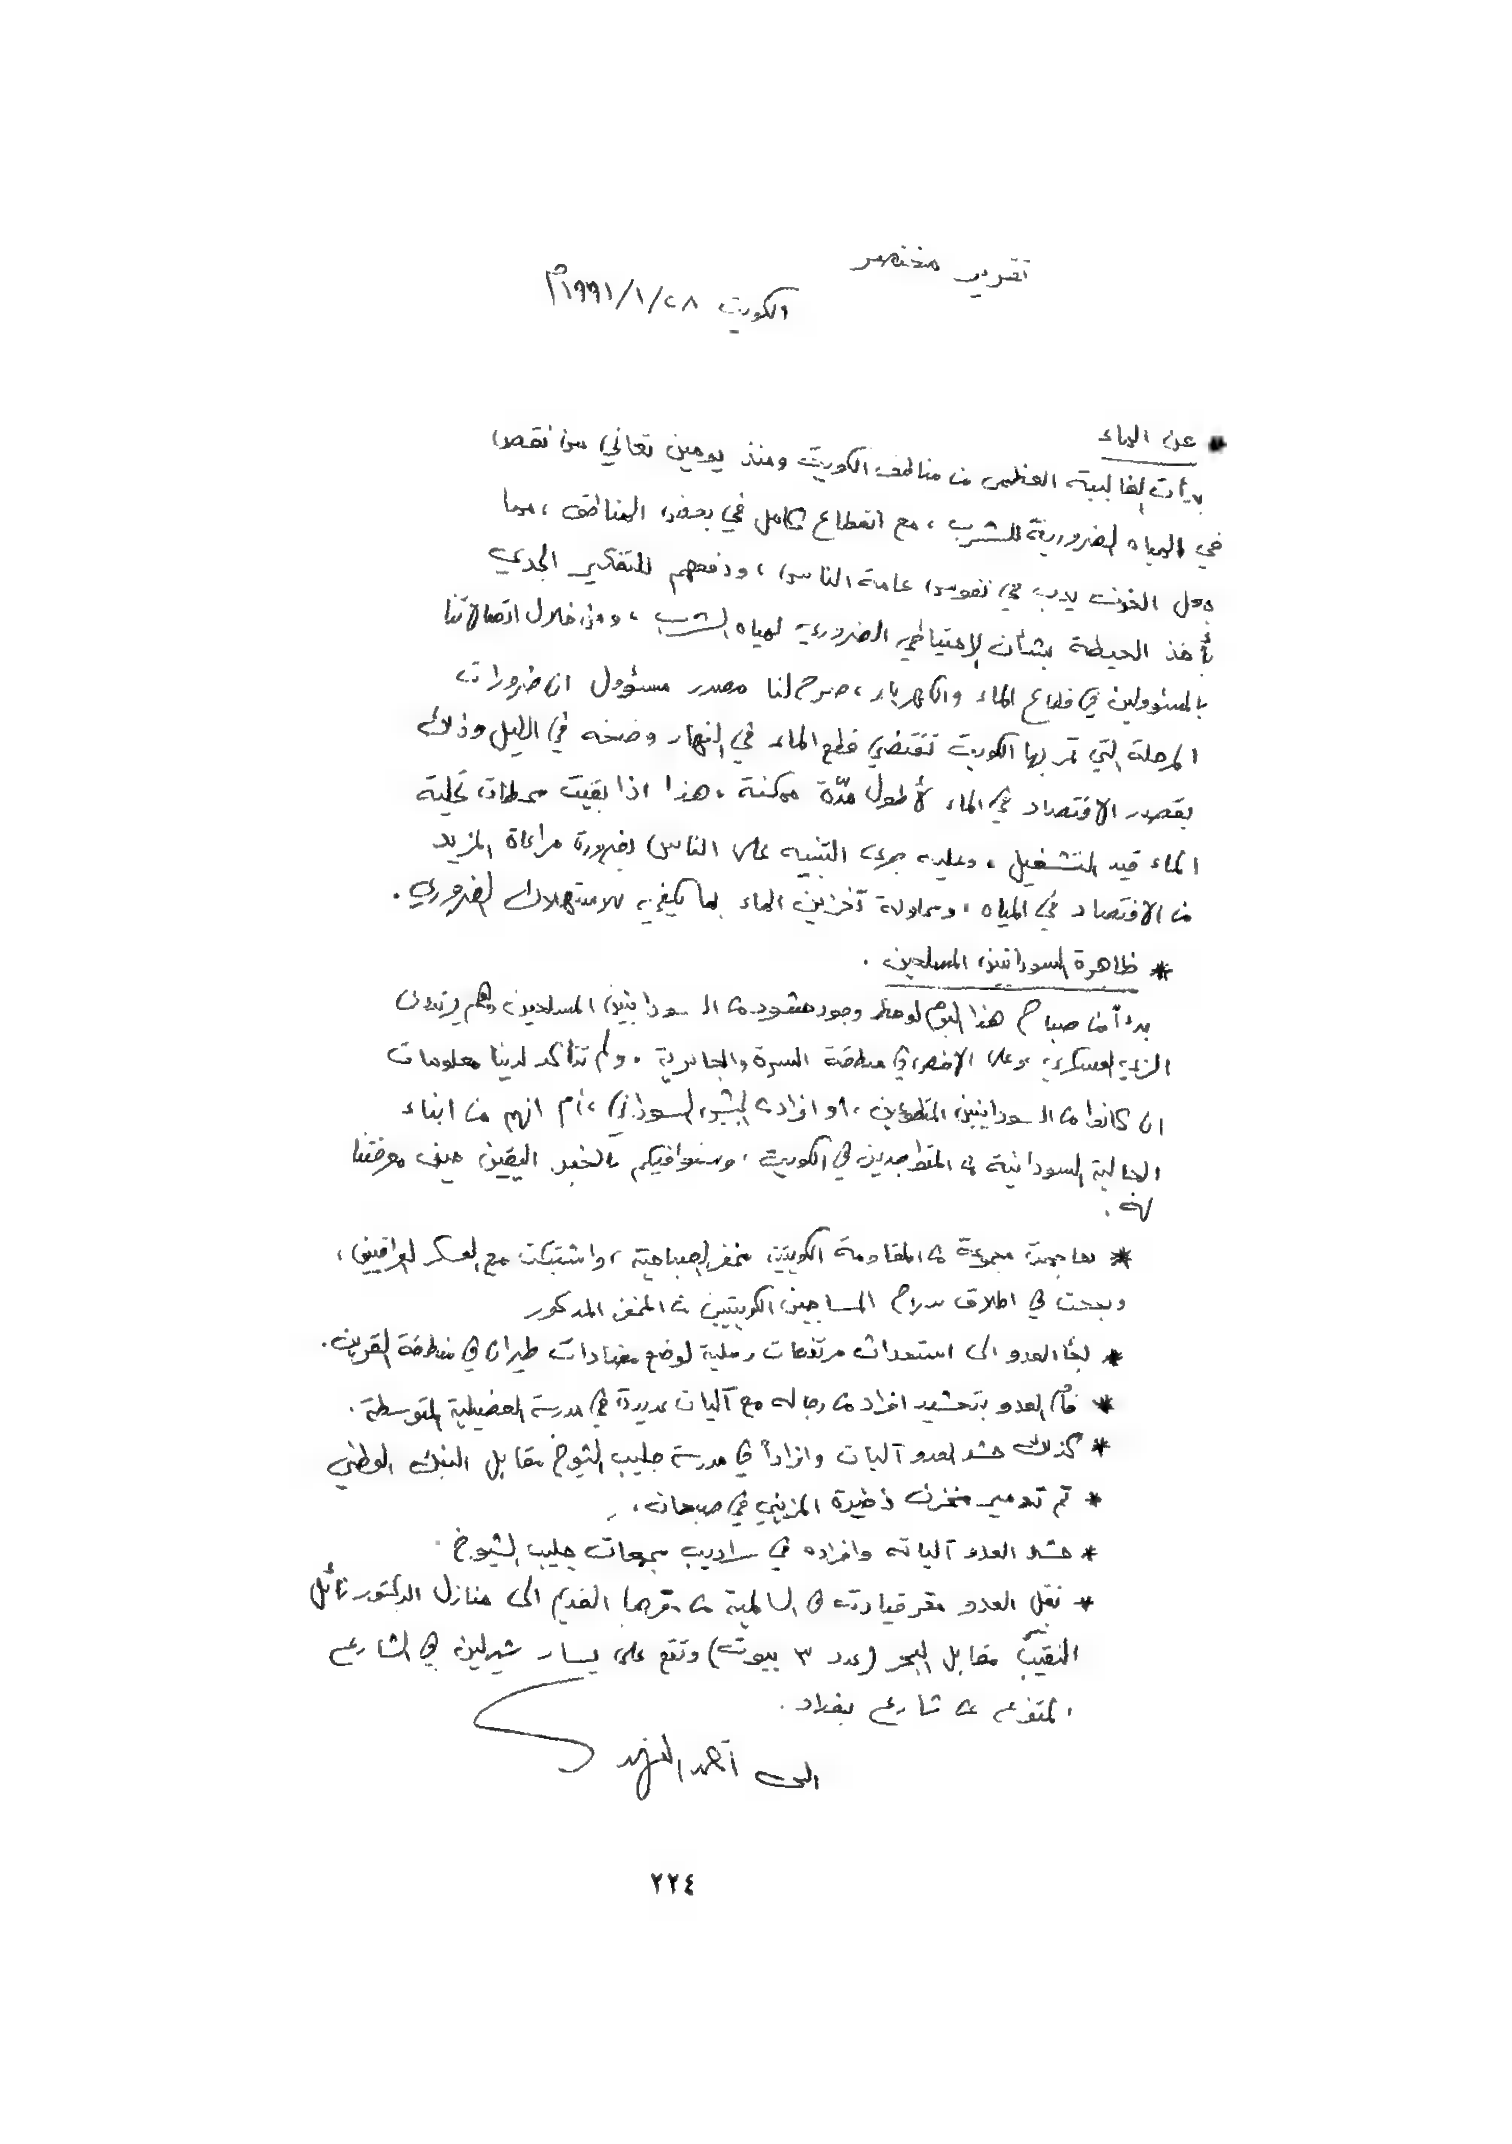 تقرير مختصر
الكويت ٢٨/١/١٩٩١م
* عن الماء
بدأت الغالبية العظمى من مناطق الكويت ومنذ يومين تعاني من نقص
في المياه الضرورية للشرب، مع انقطاع كامل في بعض المناطق، مما
جعل الخوف يدب في نفوس عامة الناس، ودفعهم للتفكير الجدي
بأخذ الحيطة بشأن الإحتياطي الضروري لمياه الشرب، ومن خلال اتصالاتنا
بالمسؤولين في قطاع الماء والكهرباء، صرح لنا مصدر مسؤول ان ضرورات
المرحلة التي تمر بها الكويت تقتضي قطع الماء في النهار وضخه في الليل وذلك
بقصد الاقتصاد في الماء لأطول مدّة ممكنة، هذا اذا بقيت محطات تحلية
الماء قيد التشغيل، وعليه جرى التنبيه على الناس بضرورة مراعاة المزيد
من الاقتصاد في المياه، ومحاولة تخزين الماء بما يكفي للاستهلاك الضروري.
* ظاهرة السودانيين المسلحين.
بدءاً من صباح هذا اليوم لوحظ وجود حشود من السودانيين المسلحين وهم يرتدون
الزي العسكري وعلى الاخص في منطقة السرة والجابرية. ولم تتأكد لدينا معلومات
ان كانوا من السودانيين المتطوعين، او افراد من الجيش السوداني، أم انهم من ابناء
الجالية السودانية المتواجدين في الكويت، وسنوافيكم بالخبر اليقين حين معرفتنا
له.
* هاجمت مجموعة من المقاومة الكويتية مخفر الصباحية، واشتبكت مع العسكر العراقيين،
ونجحت في اطلاق سراح المساجين الكويتيين من المخفر المذكور
* لجأ العدو الى استحداث مرتفعات رملية لوضع مضادات طيران في منطقة القرين.
* قام العدو بتحشيد افراد من رجاله مع آليات عديدة في مدرسة الفضيلية المتوسطة.
* كذلك حشد العدو آليات وافراداً في مدرسة جليب الشيوخ مقابل البنك الوطني
* تم تدمير مخزن ذخيرة المزيني في صبحان.
* حشد العدو آلياته وافراده في سراديب مجمعات جليب الشيوخ.
* نقل العدو مقر قيادته في السالمية من مقرها القديم الى منازل الدكتور نائل
النقيب مقابل البحر (عدد ٣ بيوت) وتقع على يسار شيرلين في الشارع
المتفرع من شارع بغداد.
الى أحمد الفهد
٢٢٤